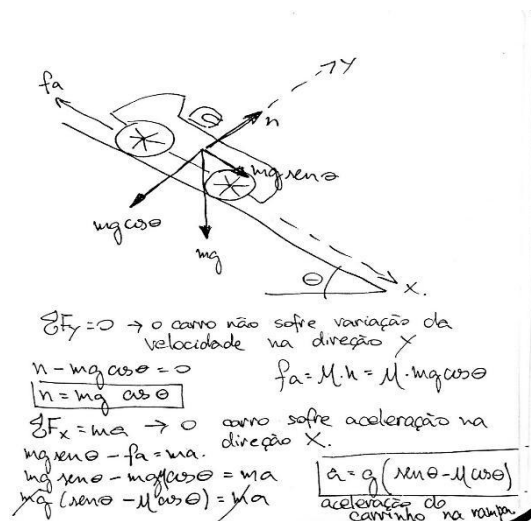 Y
fa
n
mg senθ
mg cosθ
mg
θ
X.
ΣFy = 0 → o carro não sofre variação da
velocidade na direção Y
n - mg cosθ = 0
fa = μ.n = μ.mg cosθ
n = mg cosθ
ΣFx = ma → o carro sofre aceleração na
direção X.
mg senθ - fa = ma.
mg senθ - mgμcosθ = ma
a = g(senθ - μcosθ)
mg (senθ - μcosθ) = ma
aceleração do
carrinho na rampa.